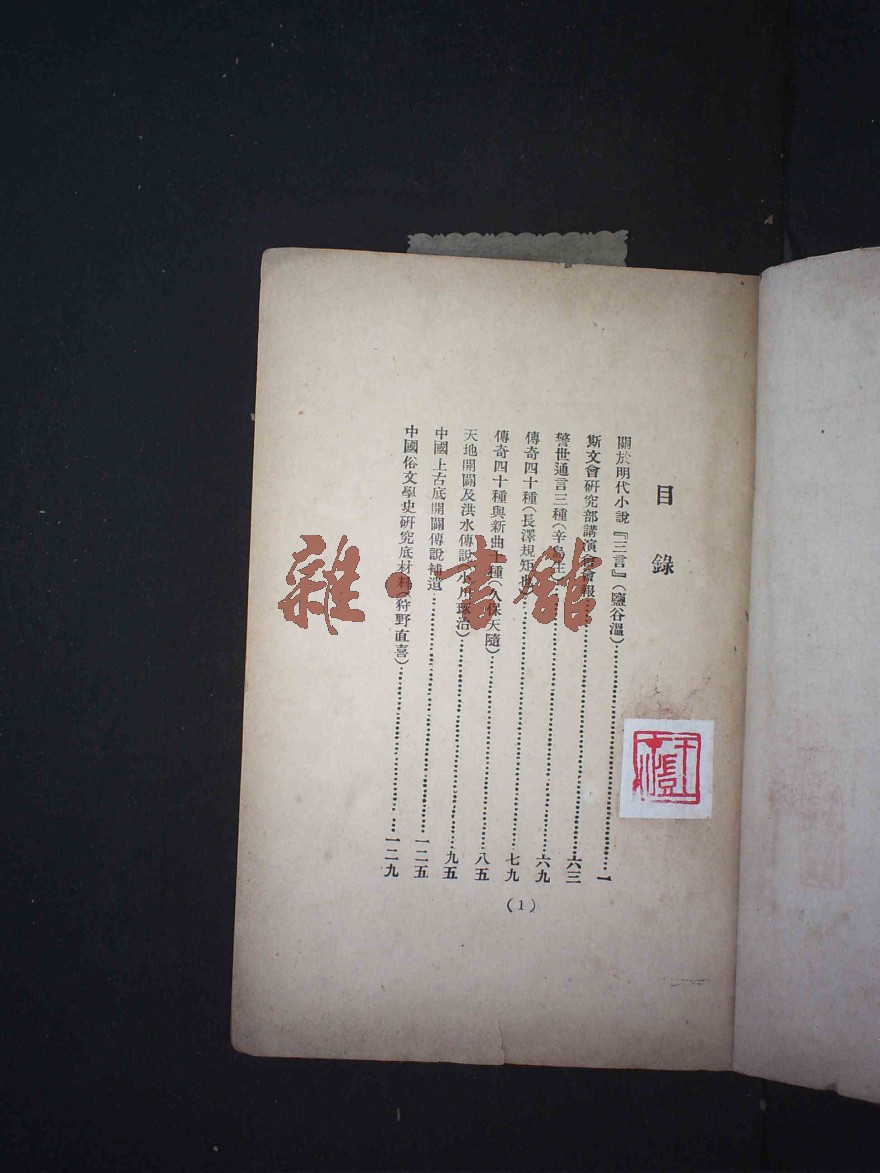 目錄
關於明代小說『三言』(鹽谷溫)……一
斯文會研究部講演會會報……六三
警世通言三種(辛島生)……六九
傳奇四十種(長澤規矩也)……七九
傳奇四十種與新曲十種(久保天隨)……八五
天地開闢及洪水傳說(小川琢治)……九五
中國上古底開闢傳說補遺……一二五
中國俗文學史研究底材料(狩野直喜)……一二九
(1)
雜·書館